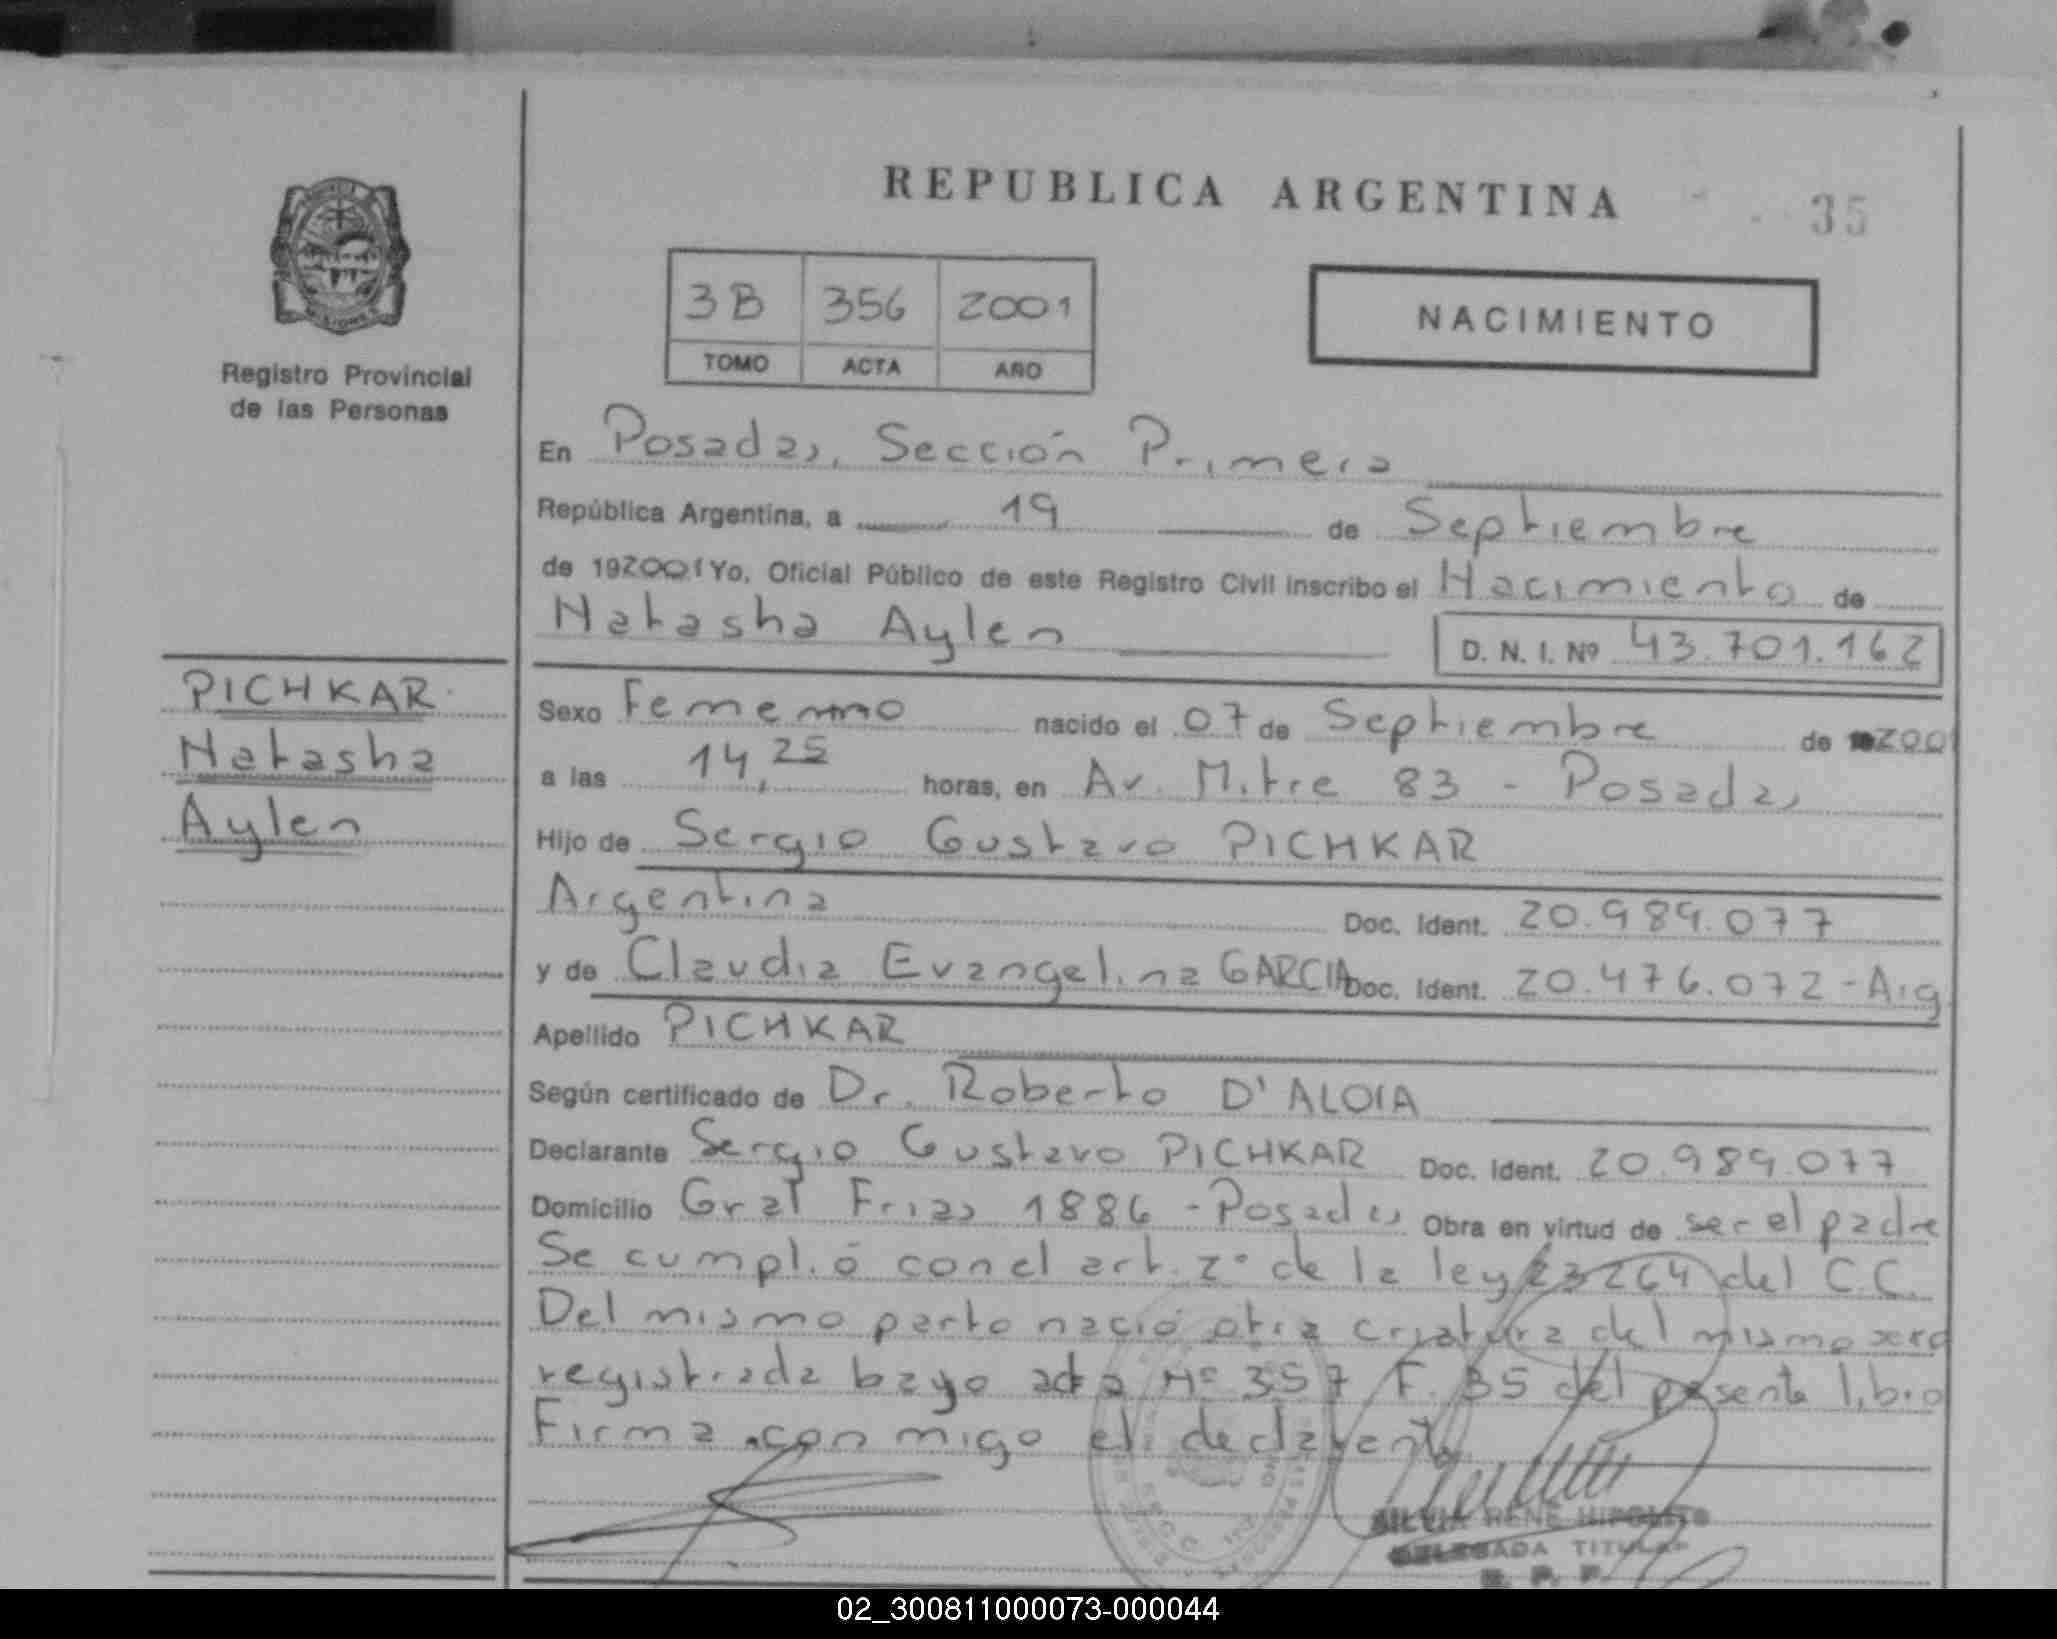 REPUBLICA ARGENTINA
35
MISIONES
Registro Provincial
de las Personas
3B 356 2001
TOMO ACTA AÑO
NACIMIENTO
En Posadas, Sección Primera
República Argentina, a 19 de Septiembre
de 192001 Yo, Oficial Público de este Registro Civil inscribo el Nacimiento de
Natasha Aylen
D. N. I. Nº 43.701.162
PICHKAR
Natasha
Aylen
Sexo Femenino nacido el 07 de Septiembre de 2001
a las 14,25 horas, en Av. Mitre 83 - Posadas
Hijo de Sergio Gustavo PICHKAR
Argentina Doc. Ident. 20.989.077
y de Claudia Evangelina GARCIA Doc. Ident. 20.476.072 - Arg
Apellido PICHKAR
Según certificado de Dr. Roberto D'ALOIA
Declarante Sergio Gustavo PICHKAR Doc. Ident. 20.989.077
Domicilio Gral Frias 1886 - Posadas Obra en virtud de ser el padre
Se cumplió con el art. 2º de la ley 23264 del C.C.
Del mismo parto nació otra criatura del mismo sexo
registrada bajo acta Nº 357 F. 35 del presente libro
Firma conmigo el declarante
SILVIA RENE HIPOLITO
DELEGADA TITULAR
R. P. P.
02_300811000073-000044